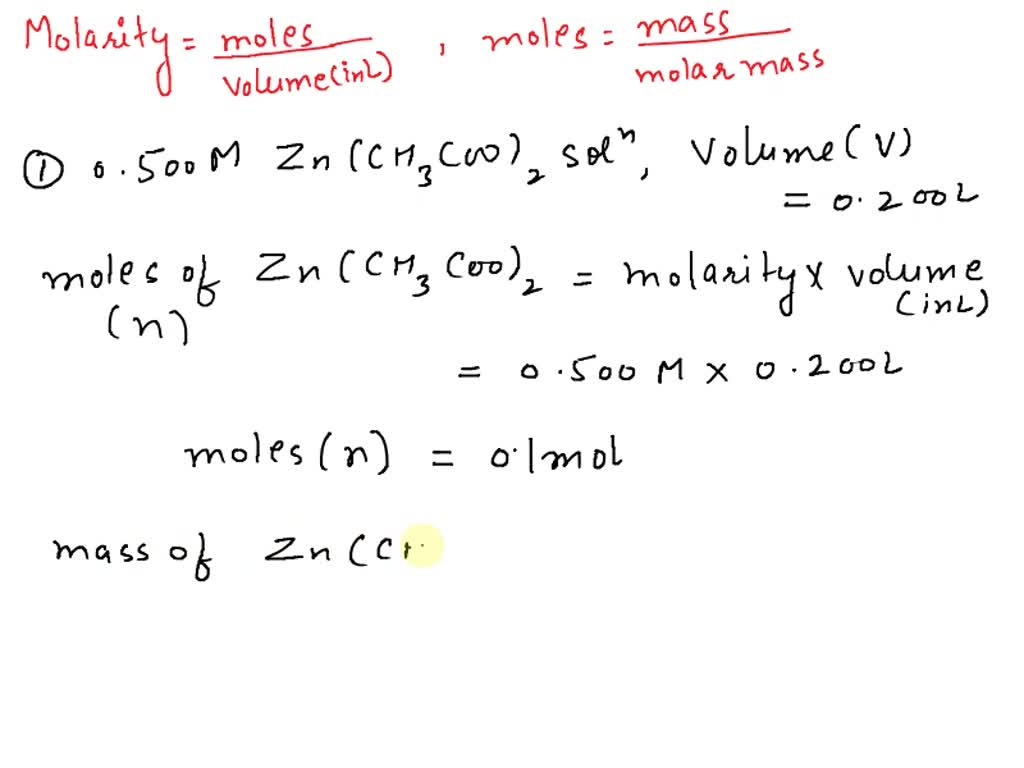 Molarity = moles / volume(inL) , moles = mass / molar mass
① 0.500 M Zn(CH3COO)2 solⁿ, Volume(V)
= 0.200L
moles of Zn(CH3COO)2 = molarity × volume
(n) (inL)
= 0.500 M × 0.200L
moles(n) = 0.1mol
mass of Zn(C